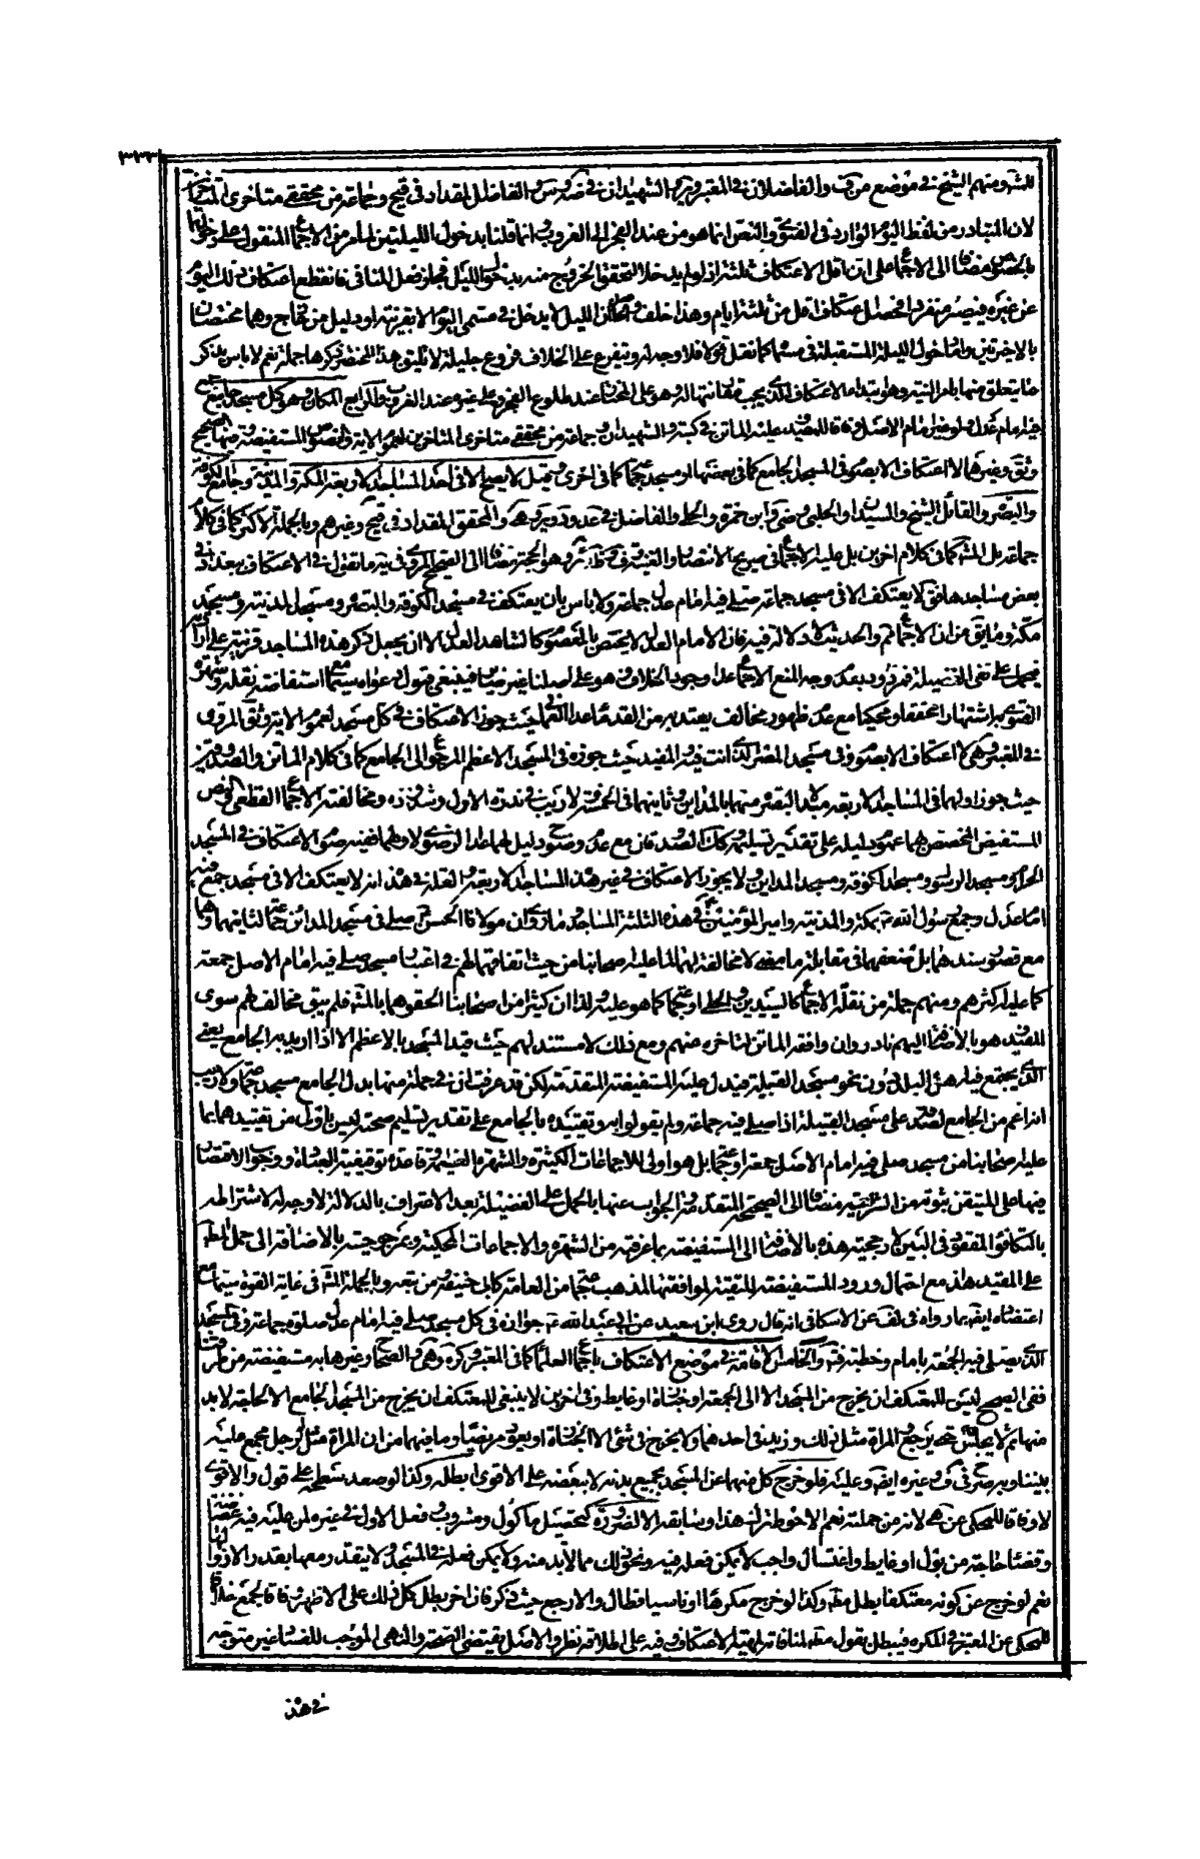 ٣٣٣
للشهر ومنهم الشيخ في موضع من والفاضلان في المعتبر و الشهيدان في والفاضل المقداد في قيح وجماعة من محققي متاخري
لان المتبادر من لفظ اليوم الوارد في الفتوى والنص انما هو من عند الفجر الى الغروب انما قلنا بدخول الليلتين لما مر من الاجماع المنقول على
مضافا الى الاجماع على ان اقل الاعتكاف ثلثة اذ لو لم يدخلا لتحقق الخروج منه بدخول الليل فجاز فعل المنافي فانقطع اعتكاف ذلك اليوم
عن غيره فيصير منفردا فحصل اعتكاف اقل من ثلثة ايام وهذا خلف الليل لا يدخل في مسمى اليوم الا بقرينة او دليل من خارج وهما مختصان
بالاخرتين واما دخول الليلة المستقبلة في مسماه كما نقل قولا فلا وجه له ويتفرع على الخلاف فروع جليلة لا يليق هذا المختصر ذكرها جملة نعم لا باس بذكر
ما يتعلق منها بامر النية وهو مبتداء الاعتكاف الذي يجب مقارنتها له وهو على المختار عند طلوع الفجر وعلى غيره عند الغروب الرابع المكان وهو كل مسجد جامع
فيه امام عدل او امام الاصل وفاقا للمفيد عليه الماتن في كتبه والشهيدان وجماعة من محققي متاخري المتاخرين لعموم الاية والنصوص المستفيضة منها الصحيح
وغيرها لا اعتكاف الا بصوم في المسجد الجامع كما في بعضها او مسجد جماعة كما في اخرى وقيل لا يصح الا في احد المساجد الاربعة المكة والمدينة وجامع الكوفة
والبصرة والقائل الشيخ والسيدان والحلبي وابن حمزة والحلي والفاضل في والمحقق المقداد في قيح وغيرهم وبالجملة الاكثر كما في كلام
جماعة بل المشهور كما في كلام اخرين بل عليه الاجماع في صريح الانتصار والغنية وهو الحجة مضافا الى الصحيح المروي في ما تقول في الاعتكاف ببغداد في
بعض مساجدها فقال لا يعتكف الا في مسجد جماعة صلى فيه امام عدل جماعة ولا باس بان يعتكف في مسجد الكوفة والبصرة ومسجد المدينة ومسجد
مكة من ان الاجماع والحديث لا دلالة فيه فان الامام العدل لا يختص بالمعصوم كالشاهد العدل الا ان يجعل ذكر هذه المساجد قرينة على
فيحمل على نفي الفضيلة فمردود بعدم وجه المنع الاجماع عدا وجود الخلاف وهو على اصلنا غير ضار فينبغي قبول دعواه سيما مع استفاضة نقله وشهرة
الفتوى به اشتهارا محققا ومحكيا مع عدم ظهور مخالف يعتد به من القدماء عدا العماني حيث جوز الاعتكاف في كل مسجد لعموم الاية وثق المروي
في المعتبر لا اعتكاف الا بصوم وفي مسجد المصر الذي انت فيه والمفيد حيث جوزه في المسجد الاعظم المرجوع الى الجامع كما في كلام الماتن والصدوق
حيث جوز اولهما في المساجد الاربعة مبدلا البصرة منها بالمداين وثانيهما في الخمسة ولا ريب في ندرة الاول وشذوذه ومخالفته الاجماع القطعي
المستفيض المخصص بهما عموم دليله على تقدير تسليمه وكك الصدوقان مع عدم وضوح دليل لهما عدا الرضوي لاولهما ففيه صوم الاعتكاف في المسجد
الحرام ومسجد الرسول ومسجد الكوفة ومسجد المداين ولا يجوز الاعتكاف في غير هذه المساجد الاربعة والعلة في هذا انه لا يعتكف الا في مسجد جمع فيه
امام عدل وجمع رسول الله بمكة والمدينة وامير المؤمنين في هذه الثلثة المساجد وما روي ان مولانا الحسن صلى في مسجد المدائن جماعة لثانيهما وهما
مع قصور سندهما بل ضعفهما في مقابلة ما مضى لا مخالفة لهما لما عليه اصحابنا من حيث اتفاقهما لهم في اعتبار مسجد صلى فيه امام الاصل جمعة
كما عليه اكثرهم ومنهم جملة من نقلة الاجماع كالسيدين والحلي او جماعة كما هو عليه ولذا ان كثيرا من اصحابنا الحقوهما بالمشهور فلم يبق مخالف لهم سوى
المفيد وهو بالاضافة اليهم نادر وان وافقه الماتن لتاخره عنهم ومع ذلك لا مستند لهم حيث قيد المسجد بالاعظم الا اذا اريد به الجامع يعني
الذي يجتمع فيه اهل البلد دون نحو مسجد القبيلة فيدل عليه المستفيضة المتقدمة لكن قد عرفت ان في جملة منها بدل الجامع مسجد جماعة ولا ريب
انه اعم من الجامع لصدقه على مسجد القبيلة اذا صلى فيه جماعة ولم يقولوا به وتقييده بالجامع على تقدير تسليم صحته ليس باولى من تقييدهما بما
عليه اصحابنا من مسجد صلى فيه امام الاصل جمعة او جماعة بل هو اولى للاجماعات الكثيرة والشهرة العظيمة وقاعدة توقيفية العبادة ووجوب الاقتصار
فيها على المتيقن ثبوته من الشريعة مضافا الى الصحيحة المتقدمة والجواب عنها بالحمل على الفضيلة بعد الاعتراف بالدلالة لا وجه له لاشتراطه
بالتكافؤ المفقود في البين لارجحية هذه بالاضافة الى المستفيضة بما عرفته من الشهرة والاجماعات المحكية ومرجوحيته بالاضافة الى حمل المطلق
على المقيد هذا مع احتمال ورود المستفيضة للتقية لموافقتها لمذهب جماعة من العامة كابي حنيفة ومن تبعه وبالجملة المشهور في غاية القوة سيما مع
اعتضاده ايضا بما رواه في لف عن الاسكافي انه قال روى ابن سعيد عن ابي عبد الله ع جوازه في كل مسجد صلى فيه امام عدل صلوة جماعة وفي المسجد
الذي يصلى فيه الجمعة بامام وخطبة والخامس الاقامة في موضع الاعتكاف باجماع العلماء كما في المعتبر وكره والصحاح وغيرها به مستفيضة من طرقنا
ففي الصحيح ليس للمعتكف ان يخرج من المسجد الا الى الجمعة او جنازة او غايط وفي اخرين لا ينبغي للمعتكف ان يخرج من المسجد الجامع الا لحاجة لا بد
منها ثم لا يجلس حتى يرجع المراة مثل ذلك وزيد في احدهما ولا يخرج في شيء الا لجنازة او يعود مريضا وما فيهما من ان المراة مثل الرجل مجمع عليه
بيننا وبه صرح في وغيره ايضا وعليه فلو خرج كل منهما عن المسجد بجميع بدنه لا ببعضه على الاقوى ابطله وكذا لو صعد سطحه على قول والاقوى
لا وفاقا للمحكي عن هى لانه من جملته نعم الاحوط ترك هذا وسابقه الا لضرورة كتحصيل ماكول ومشروب وفعل الاول في غيره لمن عليه فيه غضاضة
وقضاء حاجة من بول او غايط واغتسال واجب لا يمكن فعله فيه ونحو ذلك مما لا بد منه ولا يمكن فعله في المسجد ولا يتقدر معها بقدر الا
نعم لو خرج عن كونه معتكفا بطل مطلقا وكذا لو خرج مكرها او ناسيا فطال والا رجع حيث ذكر فان اخر بطل كل ذلك على الاظهر وفاقا لجمع خلافا
للمحكي عن المعتبر في المكره فيبطل بقول مطلق لمنافاته لمهية الاعتكاف وفيه على اطلاقه نظر والاصل يقتضي الصحة والنهي الموجب للفساد غير متوجه
في هذ